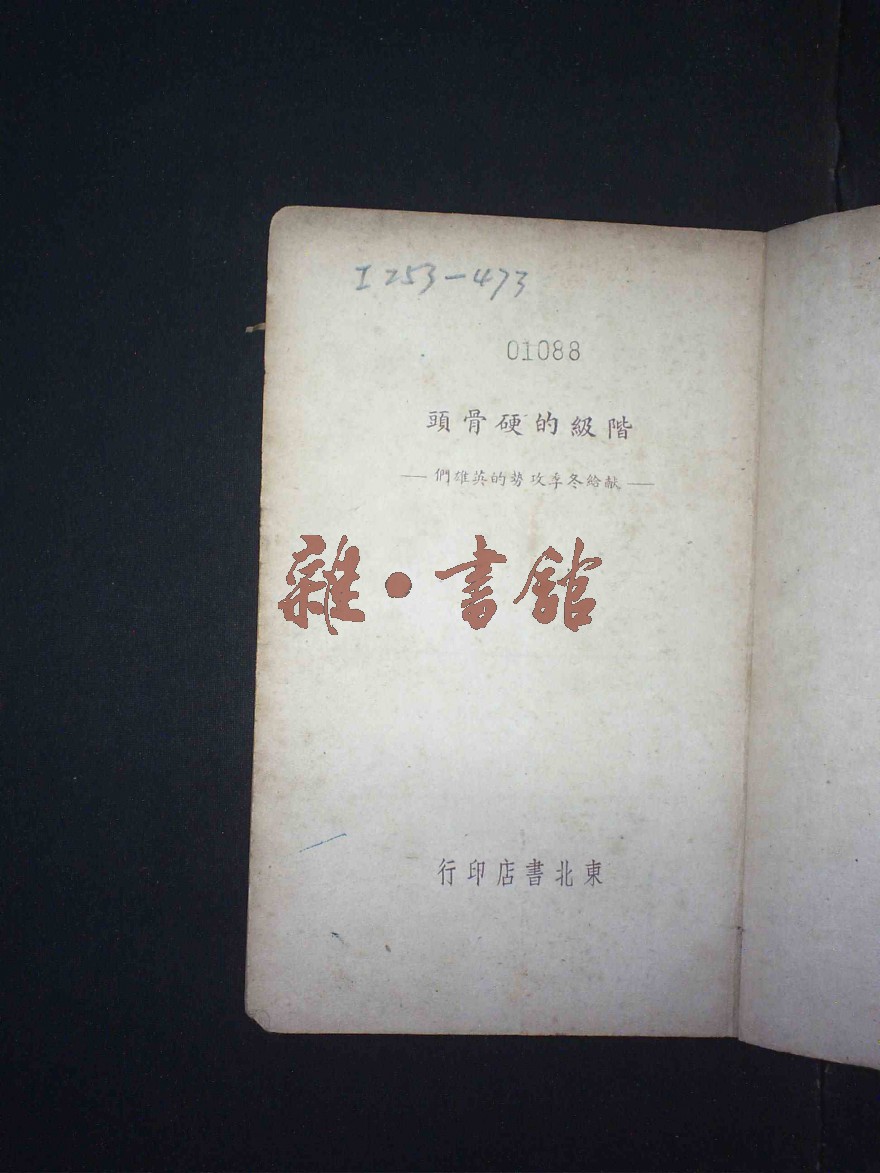 I253-473
01088
階級的硬骨頭
—献給冬季攻勢的英雄們—
雜·書館
東北書店印行